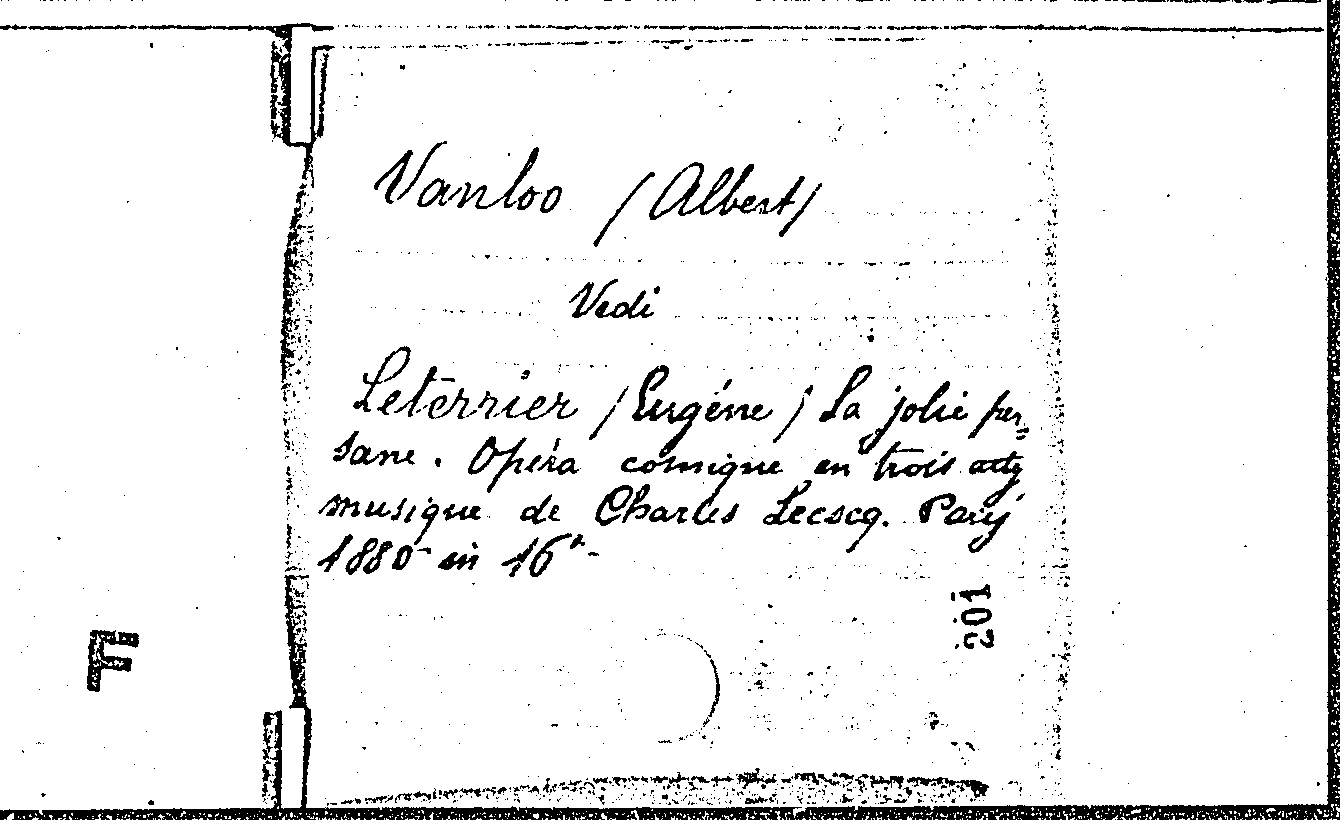 Vanloo /Albert/
Vedi
Leterrier /Eugéne/ La jolie per=
sane. Opéra comique en trois acts
musique de Charles Lecocq. Paris
1880 in 16°-
201
F